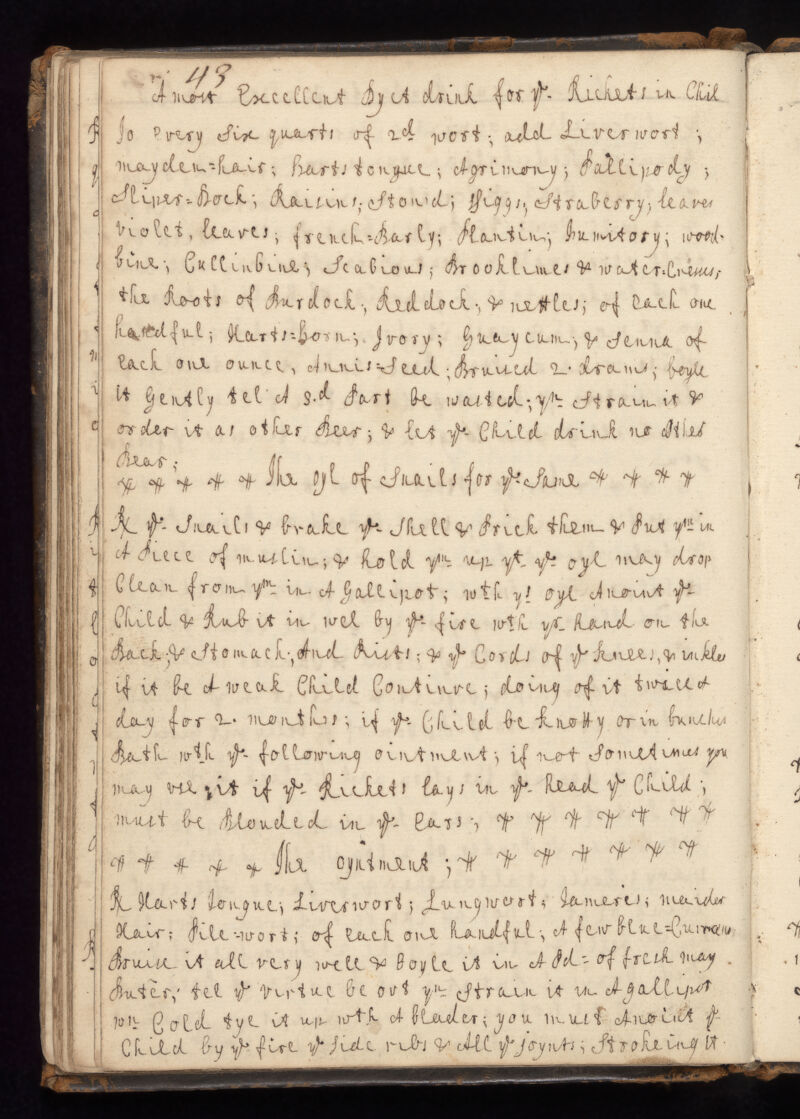 43
A most Excellent Dyet drink for ye Rickets in Chil
To every Six quarts of 2d wort; add Liverwort;
mayden=hair; harts tongue; Agrimony; Pallipody;
Raisins; Ston'd; figgs; Straberry; leaves
violet, leaves; french=Barly; Plantin; fumitory; wood-
bine; Cullinbine; Scabious; Brooklimes & water=Creeses;
the Roots of Burdock; Reddock; & nettles; of each one
handful; Harts=horn; Ivory; Guaycum; & Senna of
each one ounce, Annis=Seed; Bruised 2 drams; boyle
it Gently tel A 3.d Part be wasted; yn Strain it &
order it as other Beer; & let ye Child drink no Other
Bear;
The oyl of Snails for ye Same
Rx ye Snails & brake ye Shell & Prick them & Put ym in
A Piece of muslin; & hold ym up yt ye oyl may drop
Clean from ym in A Gallipot; wth ys oyl Anoint ye
Child & Rub it in wel by ye fire wth yr hand on the
Back; & Stomach; And Rists; & ye Cords of ye knees, & inkles
if it be A weak Child Continue; doing of it twice A
day for 2 months; if ye Child be knotty or in bunches
Bath wth ye following ointment; if not Sometimes you
may use it if ye Rickets lays in ye head ye Child;
must be Blouded in ye Ears;
The oyntment;
Rx Harts tongue; Liverwort; Lungwort; Tameris; maiden
Hair; Pile=wort; of each one handful; A few blue=Currans
Bruise it all very well & Boyle it in A Pd= of fresh may
Buter; tel ye virtue be out yn Strain it in A gallipot
wn Cold tye it up wth A blader; you must Anoint ye
Child by ye fire ye Side ribs & All ye Joynts; Strokeing it